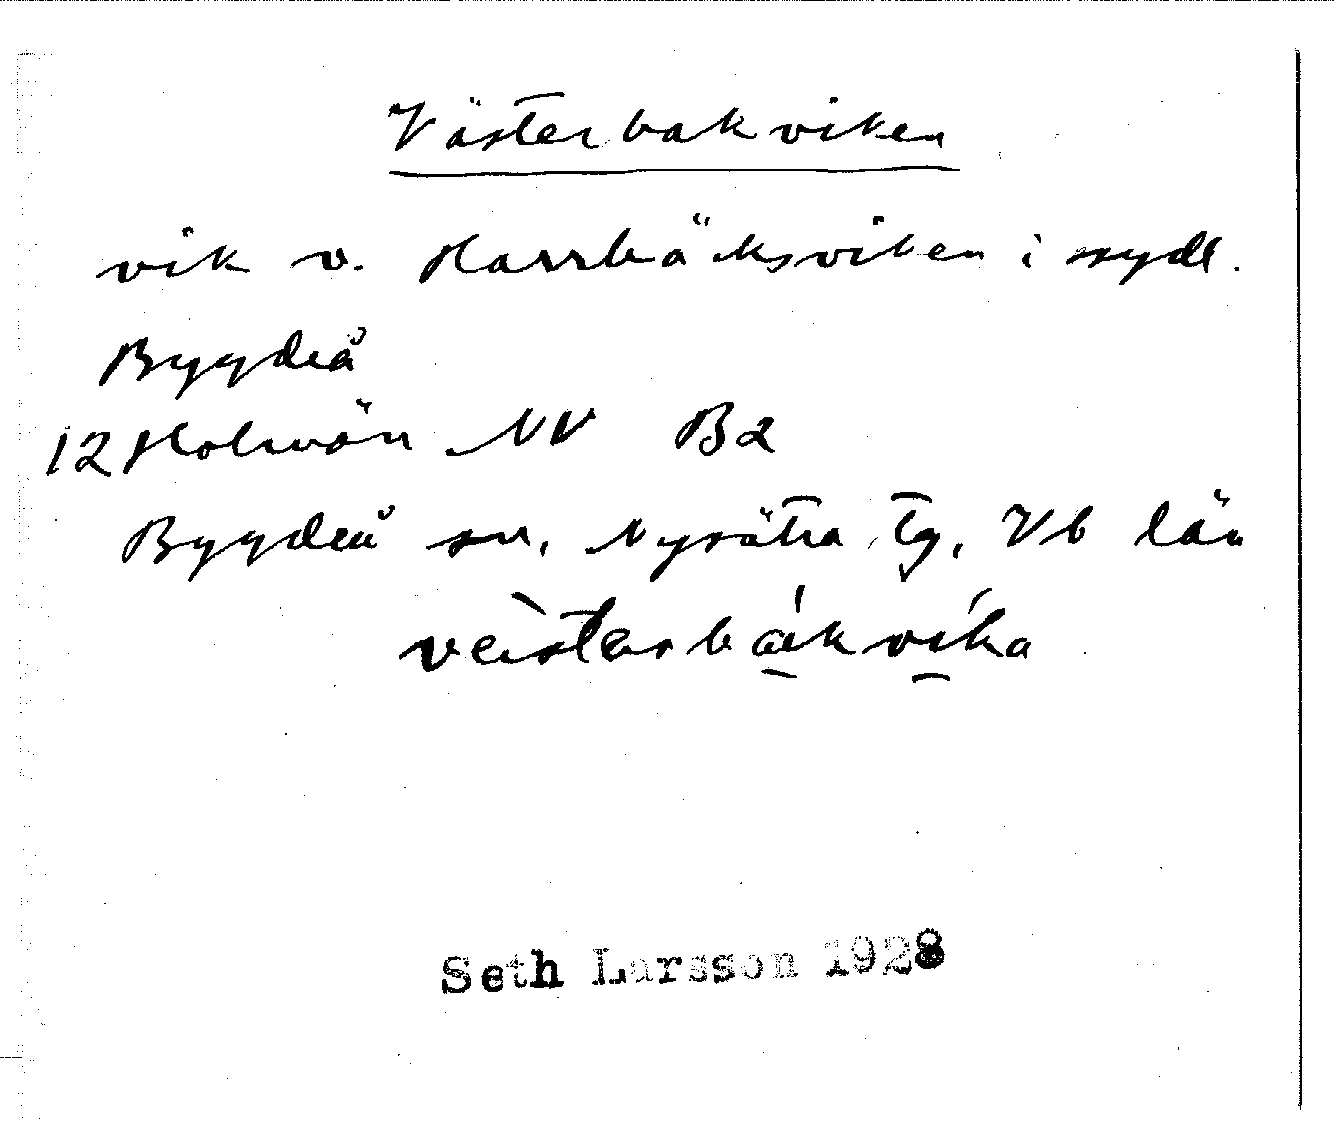 Västerbakviken
vik v. Harrbäcksviken i sydl.
Bygdeå
12 Holmön NV B2
Bygdeå sn, Nysätra tg, Vb län
Seth Larsson 1928